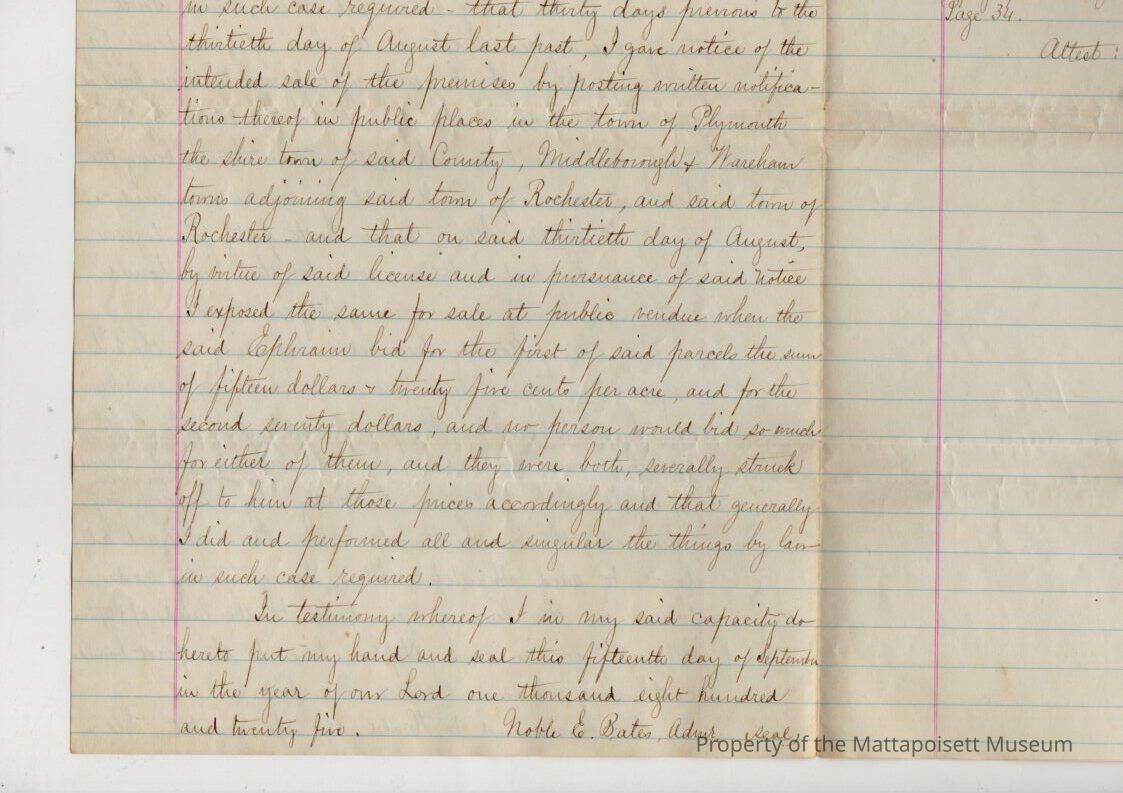 in such case required - that thirty days previous to the
thirtieth day of August last past, I gave notice of the
intended sale of the premises by posting written notifica-
tions thereof in public places in the town of Plymouth
the shire town of said County, Middleborough & Wareham
towns adjoining said town of Rochester, and said town of
Rochester - and that on said thirtieth day of August,
by virtue of said license and in pursuance of said notice
I exposed the same for sale at public vendue when the
said Ephraim bid for the first of said parcels the sum
of fifteen dollars & twenty five cents per acre, and for the
second seventy dollars, and no person would bid so much
for either of them, and they were both, severally struck
off to him at those prices accordingly and that generally
I did and performed all and singular the things by law
in such case required.
In testimony whereof I in my said capacity do
hereto put my hand and seal this fifteenth day of September
in the year of our Lord one thousand eight hundred
and twenty five. Noble E. Bates, Admr seal.
Page 34.
Attest:
Property of the Mattapoisett Museum